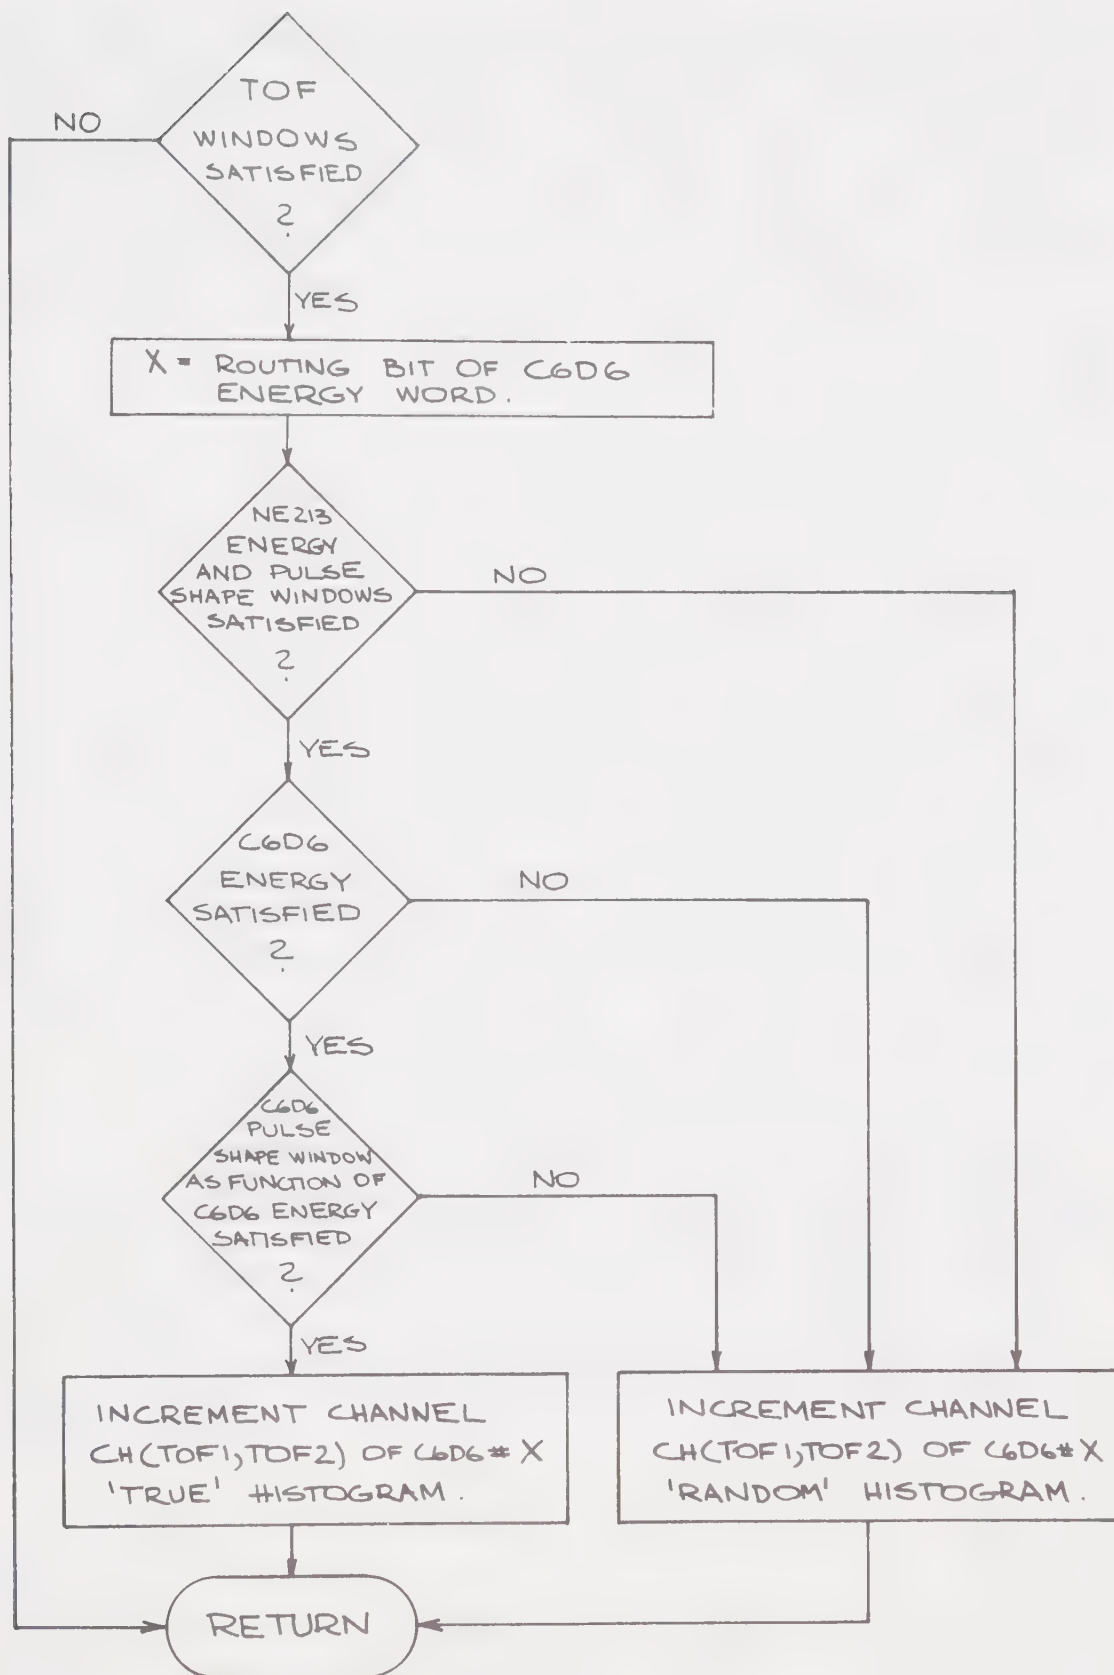 TOF
WINDOWS
SATISFIED
?
NO
YES
X = ROUTING BIT OF C6D6
ENERGY WORD.
NE213
ENERGY
AND PULSE
SHAPE WINDOWS
SATISFIED
?
NO
YES
C6D6
ENERGY
SATISFIED
?
NO
YES
C6D6
PULSE
SHAPE WINDOW
AS FUNCTION OF
C6D6 ENERGY
SATISFIED
?
NO
YES
INCREMENT CHANNEL
CH(TOF1,TOF2) OF C6D6# X
'TRUE' HISTOGRAM.
INCREMENT CHANNEL
CH(TOF1,TOF2) OF C6D6# X
'RANDOM' HISTOGRAM.
RETURN